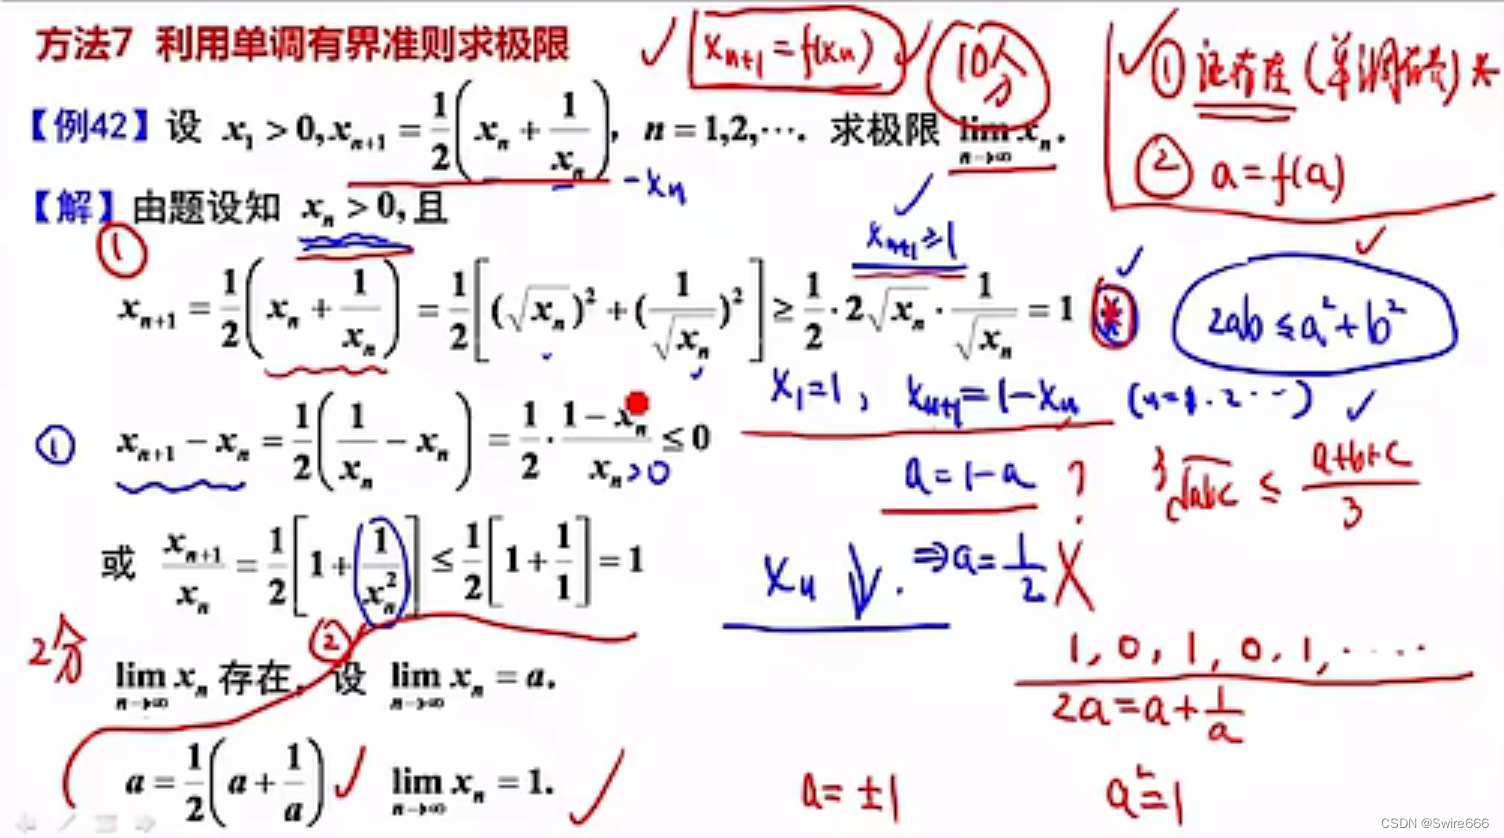 方法7 利用单调有界准则求极限
x_{n+1} = f(x_n)
10分
① 证存在 (单调有界)
② a = f(a)
【例42】设 x_1 > 0, x_{n+1} = \frac{1}{2}\left(x_n + \frac{1}{x_n}\right), n = 1,2,⋯. 求极限 \lim_{n→∞} x_n.
- x_n
【解】由题设知 x_n > 0, 且
①
x_{n+1} ≥ 1
x_{n+1} = \frac{1}{2}\left(x_n + \frac{1}{x_n}\right) = \frac{1}{2}\left[(\sqrt{x_n})^2 + (\frac{1}{\sqrt{x_n}})^2\right] ≥ \frac{1}{2}·2\sqrt{x_n}·\frac{1}{\sqrt{x_n}} = 1 *
2ab ≤ a^2 + b^2
x_1 = 1, x_{n+1} = 1 - x_n (n = 1. 2 ⋯)
① x_{n+1} - x_n = \frac{1}{2}\left(\frac{1}{x_n} - x_n\right) = \frac{1}{2}·\frac{1 - x_n}{x_n} ≤ 0
>0
a = 1 - a ?
\sqrt[3]{abc} ≤ \frac{a+b+c}{3}
或 \frac{x_{n+1}}{x_n} = \frac{1}{2}\left[1 + \frac{1}{x_n^2}\right] ≤ \frac{1}{2}\left[1 + \frac{1}{1}\right] = 1
x_n ↓. ⇒ a = \frac{1}{2} ×
2分
②
1, 0, 1, 0, 1, ⋯⋅
\lim_{n→∞} x_n 存在, 设 \lim_{n→∞} x_n = a.
2a = a + \frac{1}{a}
a = \frac{1}{2}\left(a + \frac{1}{a}\right) \lim_{n→∞} x_n = 1.
a = ±1 a^2 = 1
CSDN @Swire666